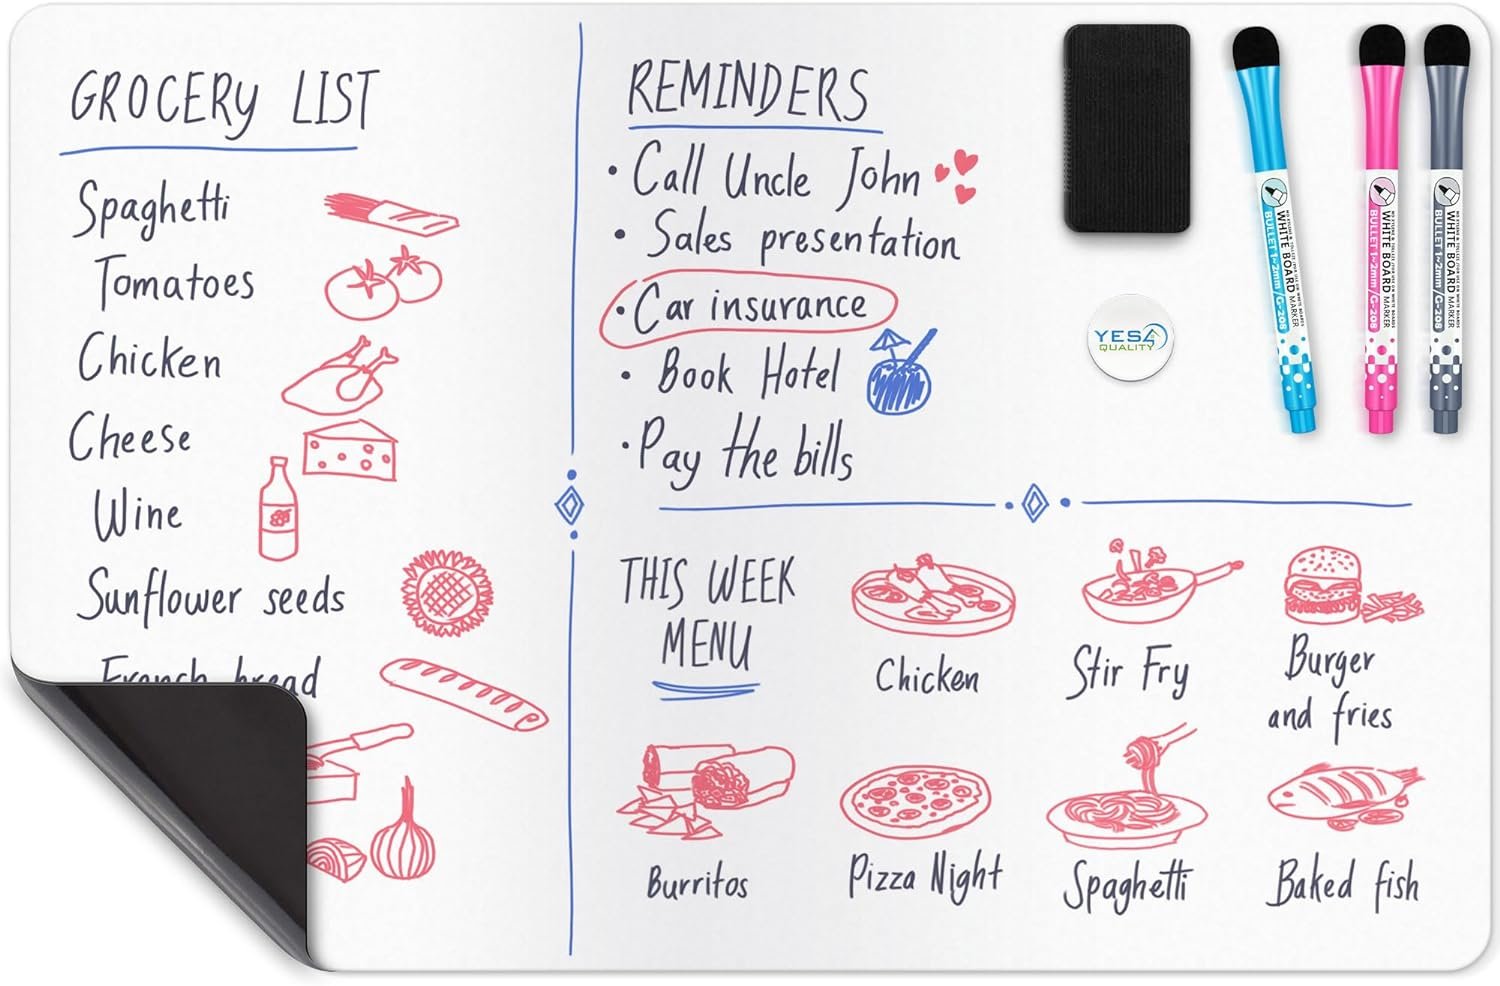 GROCERY LIST
Spaghetti
Tomatoes
Chicken
Cheese
Wine
Sunflower seeds
French bread
REMINDERS
• Call Uncle John
• Sales presentation
• Car insurance
• Book Hotel
• Pay the bills
YES4
QUALITY
WHITE BOARD MARKER
BULLET 1~2mm/G-208
WHITE BOARD MARKER
BULLET 1~2mm/G-208
WHITE BOARD MARKER
BULLET 1~2mm/G-208
THIS WEEK
MENU
Chicken
Stir Fry
Burger
and fries
Burritos
Pizza Night
Spaghetti
Baked fish